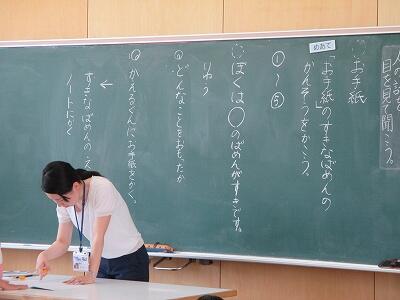 人の話を
目を見て聞こう。
お手紙
めあて
「お手紙」のすきなばめんの
かんそうをかこう。
①～⑤
ぼくは〇のばめんがすきです。
りゆう
どんなことをおもったか
かえるくんにお手紙をかく。
すきなばめんのえ
ノートにかく